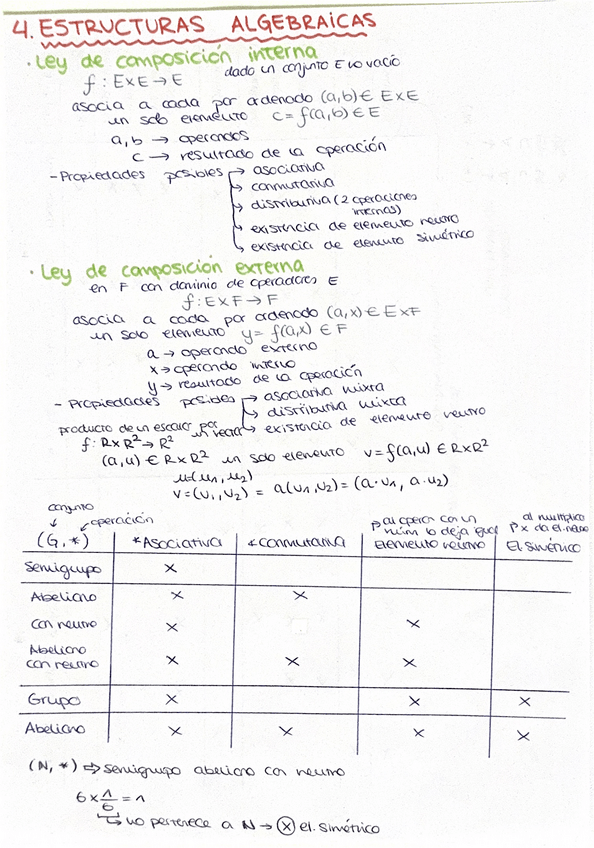 4. ESTRUCTURAS ALGEBRAICAS
· Ley de composición interna
f : E×E → E dado un conjunto E no vacío
asocia a cada par ordenado (a,b) ∈ E×E
un solo elemento c = f(a,b) ∈ E
a, b → operandos
c → resultado de la operación
- Propiedades posibles → asociativa
→ conmutativa
→ distributiva (2 operaciones
internas)
→ existencia de elemento neutro
→ existencia de elemento simétrico
· Ley de composición externa
en F con dominio de operadores E
f : E×F → F
asocia a cada par ordenado (a,x) ∈ E×F
un solo elemento y = f(a,x) ∈ F
a → operando externo
x → operando interno
y → resultado de la operación
- Propiedades posibles → asociativa mixta
→ distributiva mixta
→ existencia de elemento neutro
producto de un escalar por un vector
f : R×R² → R²
(a,u) ∈ R×R² un solo elemento v = f(a,u) ∈ R×R²
u(u₁, u₂)
v = (v₁, v₂) = a(u₁, u₂) = (a·u₁, a·u₂)
conjunto
operación
p al operar con un al multiplica
núm lo deja igual P x da el. neuro
(G, *) *Asociativa *conmutativa Elemento neutro El simétrico
Semigrupo ×
Abeliano × ×
con neutro × ×
Abeliano
con neutro × × ×
Grupo × × ×
Abeliano × × × ×
(N, *) ⇒ semigrupo abeliano con neutro
6 × 1/6 = 1
→ no pertenece a N → ⊗ el. simétrico